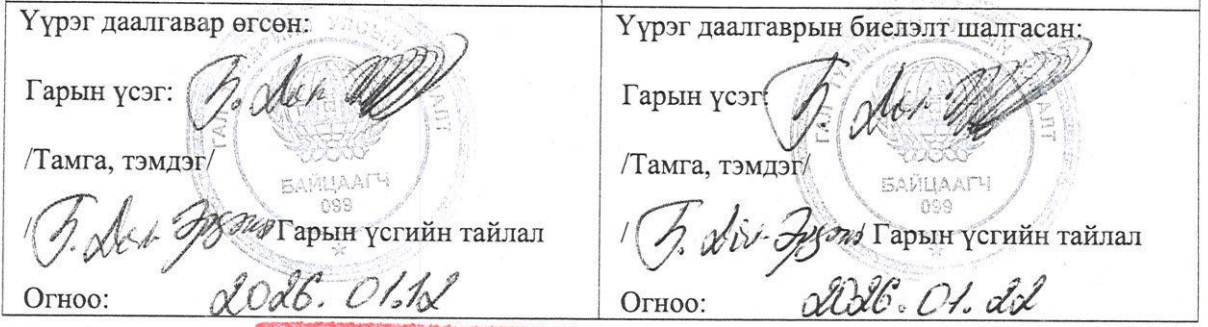 Үүрэг даалгавар өгсөн:
Гарын үсэг:
/Тамга, тэмдэг/
БАЙЦААГЧ
099
/ Гарын үсгийн тайлал
Огноо: 2026. 01.12
Үүрэг даалгаврын биелэлт шалгасан:
Гарын үсэг:
/Тамга, тэмдэг/
БАЙЦААГЧ
099
/ Гарын үсгийн тайлал
Огноо: 2026. 01. 22